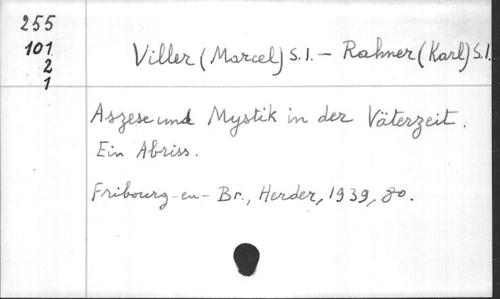 255
101
2
1
Viller (Marcel) S.I. – Rahner (Karl) S.I.
Aszese und Mystik in der Väterzeit.
Ein Abriss.
Fribourg-en-Br., Herder, 1939, 8o.